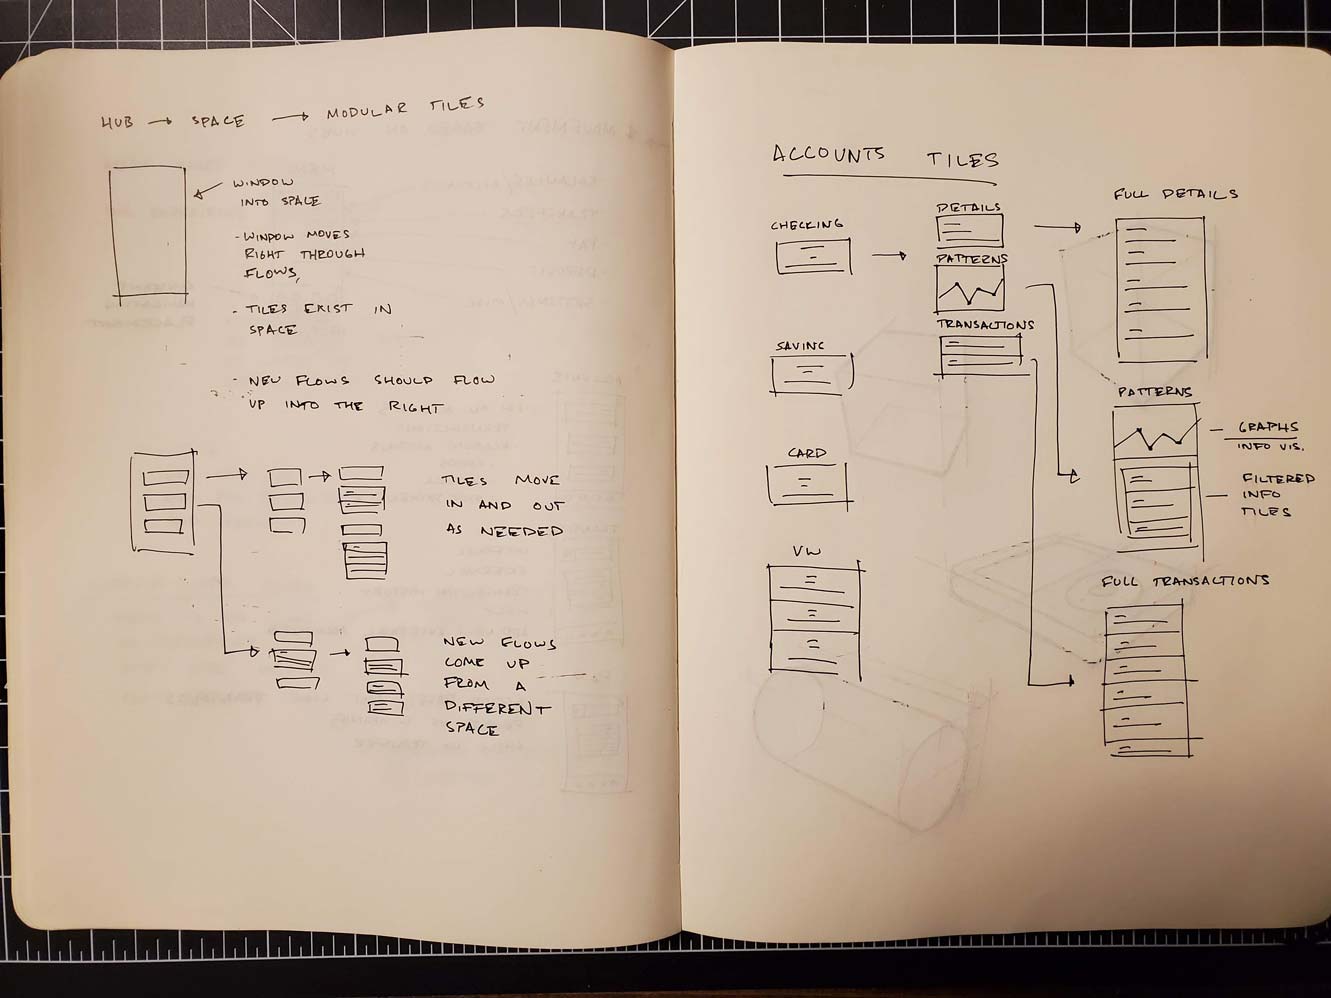 HUB → SPACE → MODULAR TILES
WINDOW
INTO SPACE
- WINDOW MOVES
RIGHT THROUGH
FLOWS,
- TILES EXIST IN
SPACE
- NEW FLOWS SHOULD FLOW
UP INTO THE RIGHT
TILES MOVE
IN AND OUT
AS NEEDED
NEW FLOWS
COME UP
FROM A
DIFFERENT
SPACE
ACCOUNTS TILES
CHECKING
SAVING
CARD
VW
DETAILS
PATTERNS
TRANSACTIONS
FULL DETAILS
PATTERNS
- GRAPHS
INFO VIS.
- FILTERED
INFO
TILES
FULL TRANSACTIONS